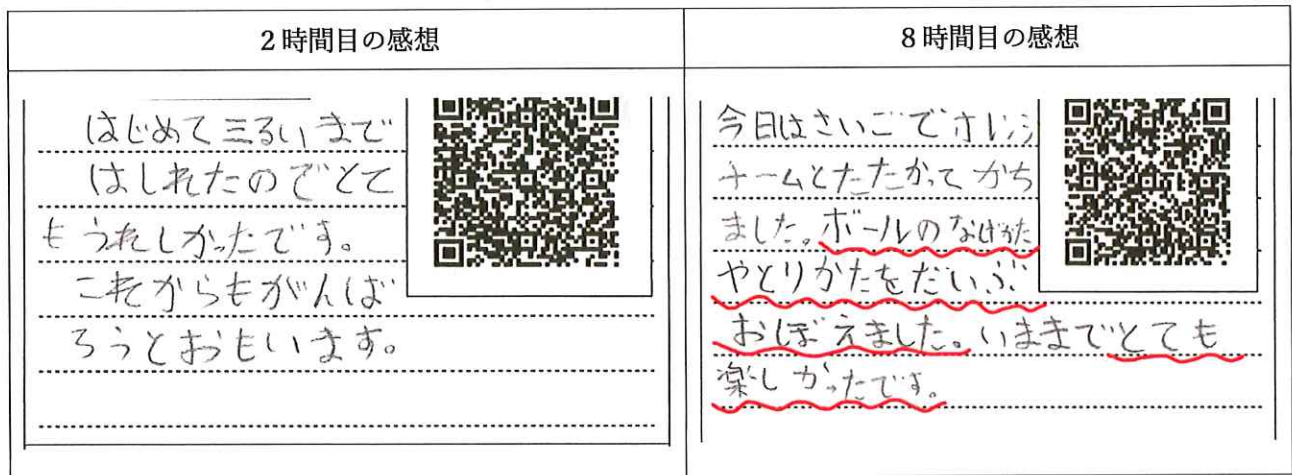 2時間目の感想
はじめて三るいまで
はしれたのでとて
もうれしかったです。
これからもがんば
ろうとおもいます。
8時間目の感想
今日はさいごでオレンジ
チームとたたかってかち
ました。ボールのなげかた
やとりかたをだいぶ
おぼえました。いままでとても
楽しかったです。